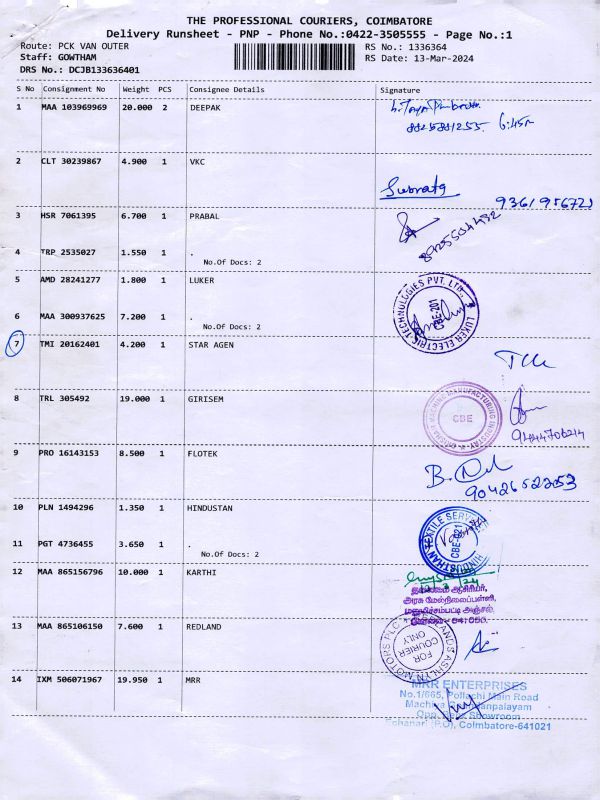 THE PROFESSIONAL COURIERS, COIMBATORE
Delivery Runsheet - PNP - Phone No.:0422-3505555 - Page No.:1
Route: PCK VAN OUTER
Staff: GOWTHAM
DRS No.: DCJB133636401
RS No.: 1336364
RS Date: 13-Mar-2024
S No Consignment No Weight PCS Consignee Details Signature
1 MAA 103969969 20.000 2 DEEPAK
6:45
2 CLT 30239867 4.900 1 VKC
Subrata
3 HSR 7061395 6.700 1 PRABAL
8925504432
4 TRP 2535027 1.550 1 .
No.Of Docs: 2
5 AMD 28241277 1.800 1 LUKER
LUKER ELECTRIC TECHNOLOGIES PVT. LTD.
CBE-201
6 MAA 300937625 7.200 1 .
No.Of Docs: 2
7 TMI 20162401 4.200 1 STAR AGEN
8 TRL 305492 19.000 1 GIRISEM
MACHINE MANUFACTURING INDUSTRY
CBE
9 PRO 16143153 8.500 1 FLOTEK
10 PLN 1494296 1.350 1 HINDUSTAN
HINDUSTHAN TEXTILE
11 PGT 4736455 3.650 1 .
No.Of Docs: 2
12 MAA 865156796 10.000 1 KARTHI
அரசு மேல்நிலைப்பள்ளி,
13 MAA 865106150 7.600 1 REDLAND
REDLANDS ASHLYN MOTORS PLC
FOR
COURIER
ONLY
14 IXM 506071967 19.950 1 MRR
MRR ENTERPRISES
No.1/665, Pollachi Main Road
Showroom
(P.O), Coimbatore-641021